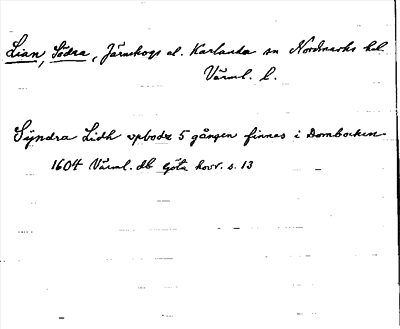 Lian, Södra, Järnskogs el. Karlanda sn Nordmarks hd.
Värml. l.
Syndra Lidh upbodz 5 gången finnes i Dombocken
1604 Värml. db Göta hovr. s. 13